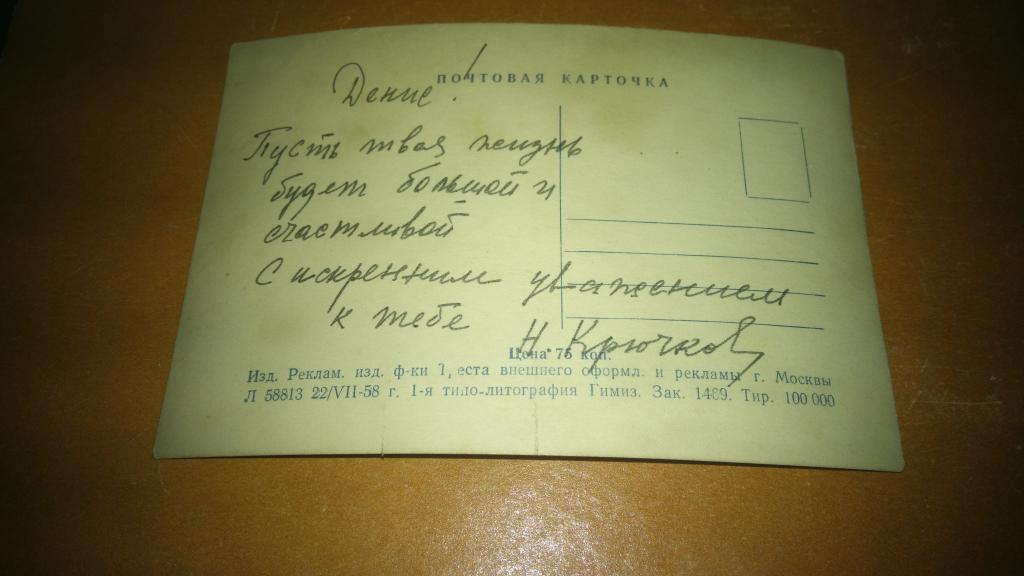 ПОЧТОВАЯ КАРТОЧКА
Денис!
Пусть твоя жизнь
будет большой и
счастливой
С искренним уважением
к тебе Н. Крючков
Цена 75 коп.
Изд. Реклам. изд. ф-ки Т, еста внешнего оформл. и рекламы г. Москвы
Л 58813 22/VII-58 г. 1-я типо-литография Гимиз. Зак. 1469. Тир. 100 000